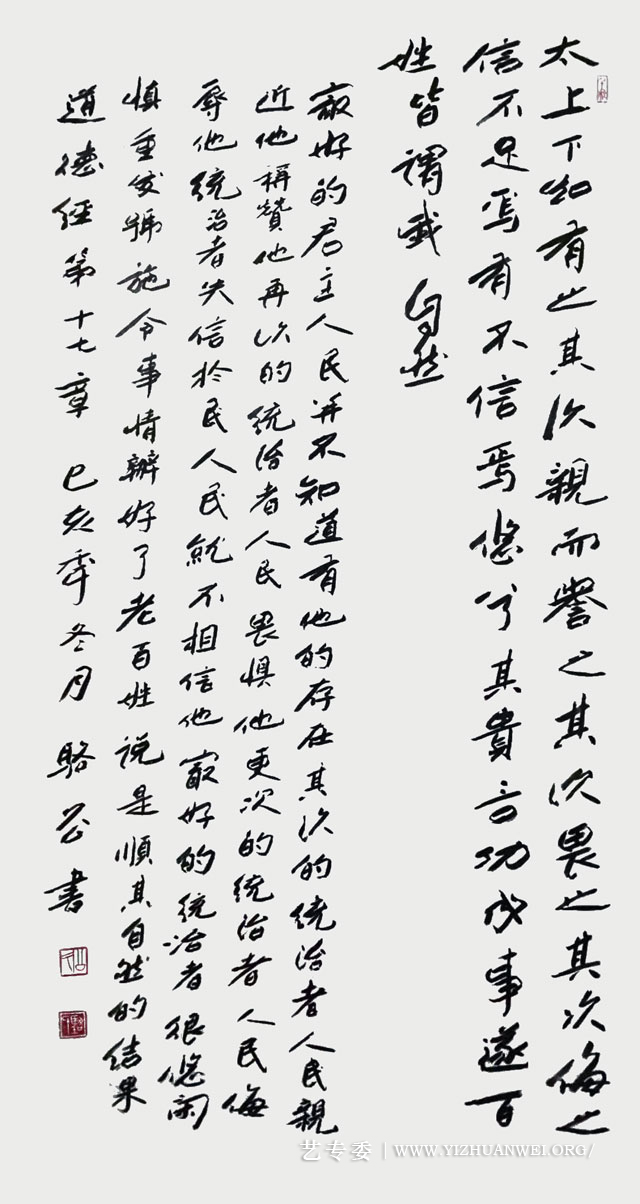 太上下知有之其次親而譽之其次畏之其次侮之
信不足焉有不信焉悠兮其貴言功成事遂百
姓皆謂我自然
最好的君主人民并不知道有他的存在其次的統治者人民親
近他稱贊他再次的統治者人民畏惧他更次的統治者人民侮
辱他統治者失信於民人民就不相信他最好的統治者很悠闲
慎重发號施令事情辦好了老百姓说是順其自然的结果
道德經第十七章 己亥年冬月 駱 書
艺专委 | WWW.YIZHUANWEI.ORG/